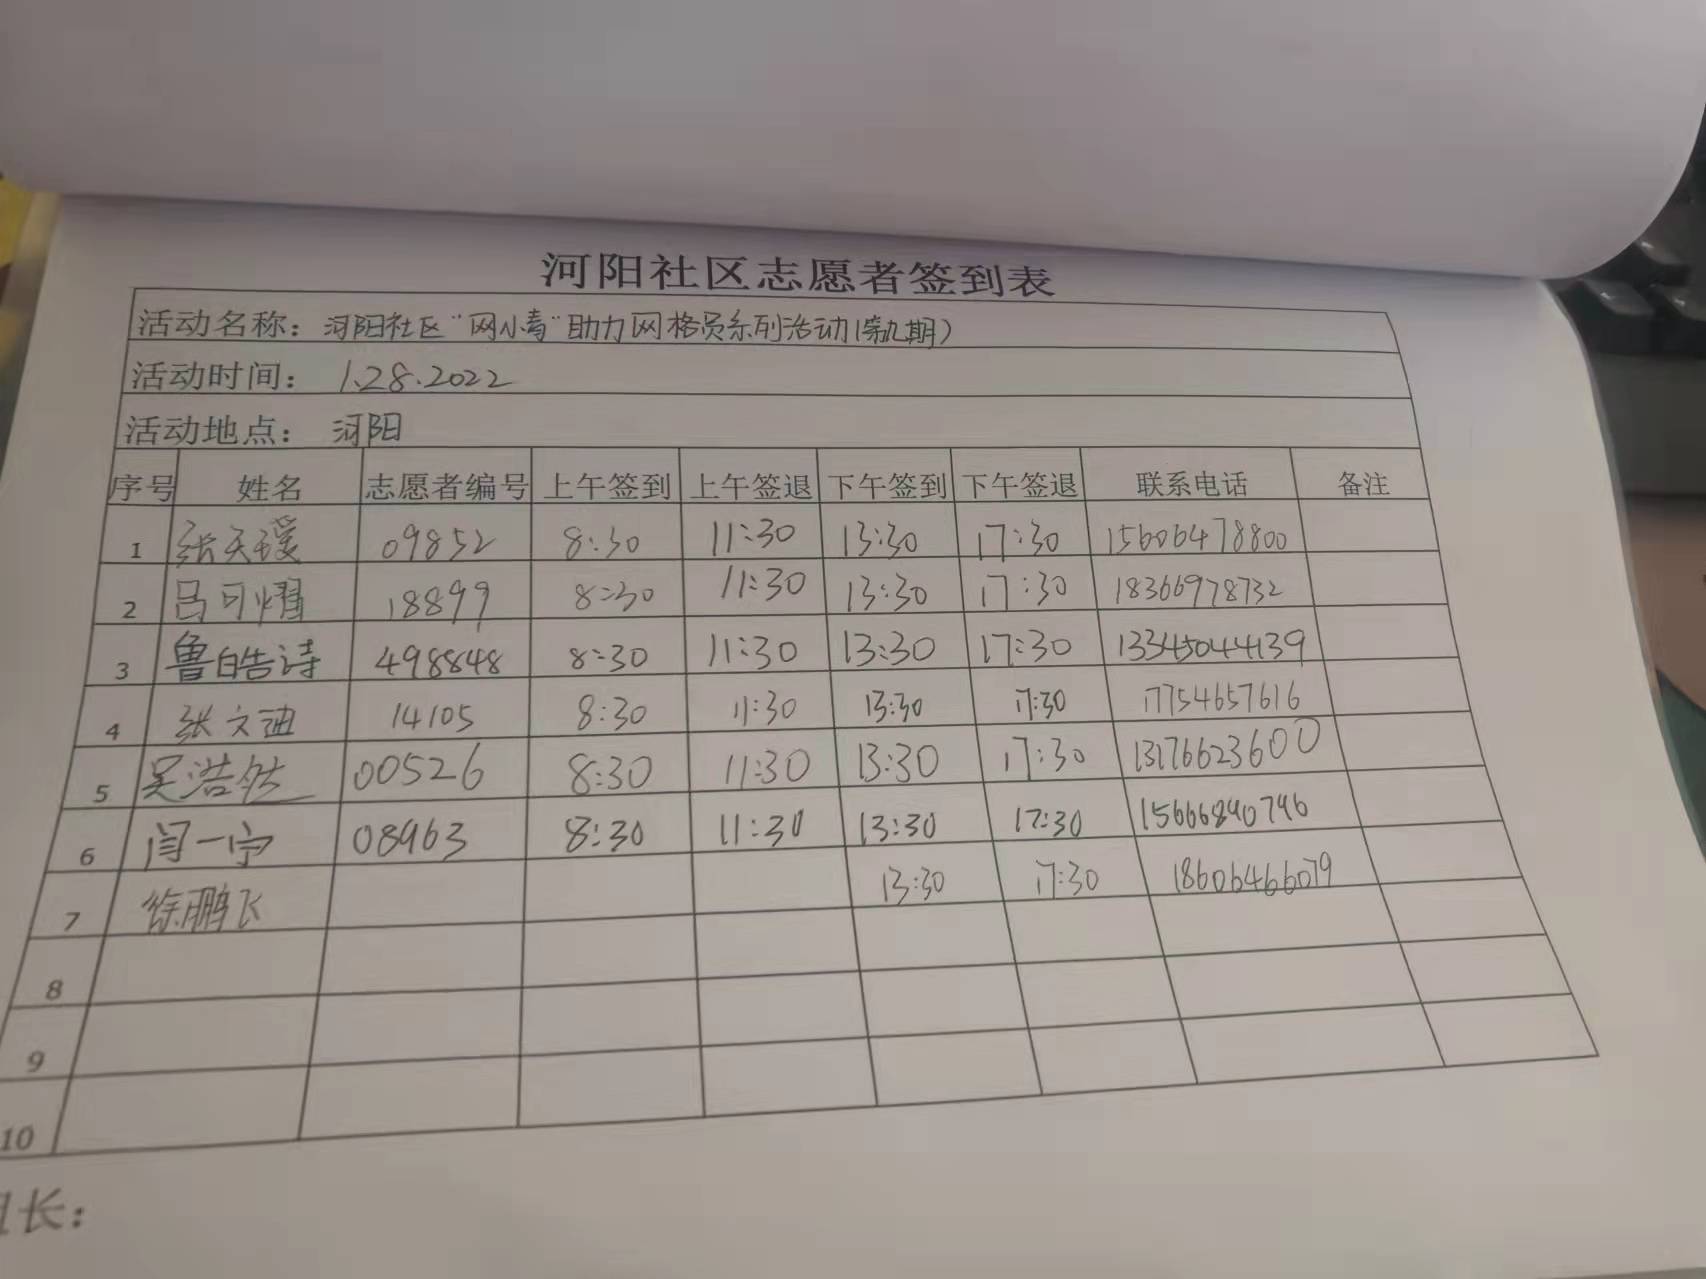 河阳社区志愿者签到表
活动名称：河阳社区“网小青”助力网格员系列活动（第九期）
活动时间： 1.28.2022
活动地点： 河阳
序号 姓名 志愿者编号 上午签到 上午签退 下午签到 下午签退 联系电话 备注
1 张天瑷 09852 8:30 11:30 13:30 17:30 15606478800
2 吕可熠 18899 8:30 11:30 13:30 17:30 18366978732
3 鲁皓诗 498848 8:30 11:30 13:30 17:30 13345044139
4 张文迪 14105 8:30 11:30 13:30 17:30 17754657616
5 吴浩然 00526 8:30 11:30 13:30 17:30 13176623600
6 闫一宁 08963 8:30 11:30 13:30 17:30 15666890796
7 徐鹏飞 13:30 17:30 18606466079
8
9
10
长：